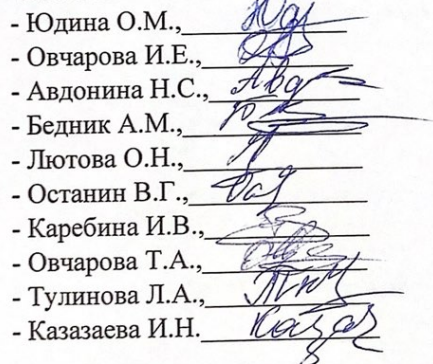 - Юдина О.М.,
- Овчарова И.Е.,
- Авдонина Н.С.,
- Бедник А.М.,
- Лютова О.Н.,
- Останин В.Г.,
- Каребина И.В.,
- Овчарова Т.А.,
- Тулинова Л.А.,
- Казазаева И.Н.